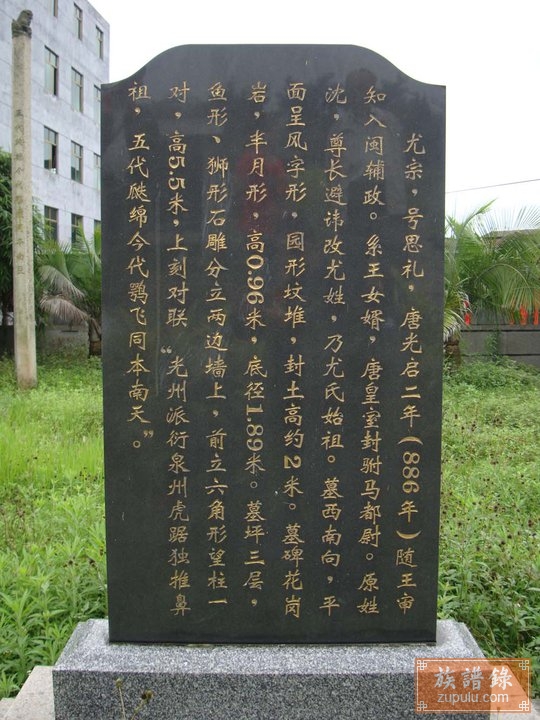 尤宗，号思礼，唐光启二年(886年)随王审
知入闽辅政。系王女婿，唐皇室封驸马都尉。原姓
沈，尊长避讳改尤姓，乃尤氏始祖。墓西南向，平
面呈风字形，园形坟堆，封土高约2米。墓碑花岗
岩，半月形，高0.96米，底径1.89米。墓坪三层，
鱼形、狮形石雕分立两边墙上，前立六角形望柱一
对，高5.5米，上刻对联“光州派衍泉州虎踞独推鼻
祖，五代瓞绵今代鹗飞同本南天”。
族譜錄
zupulu.com